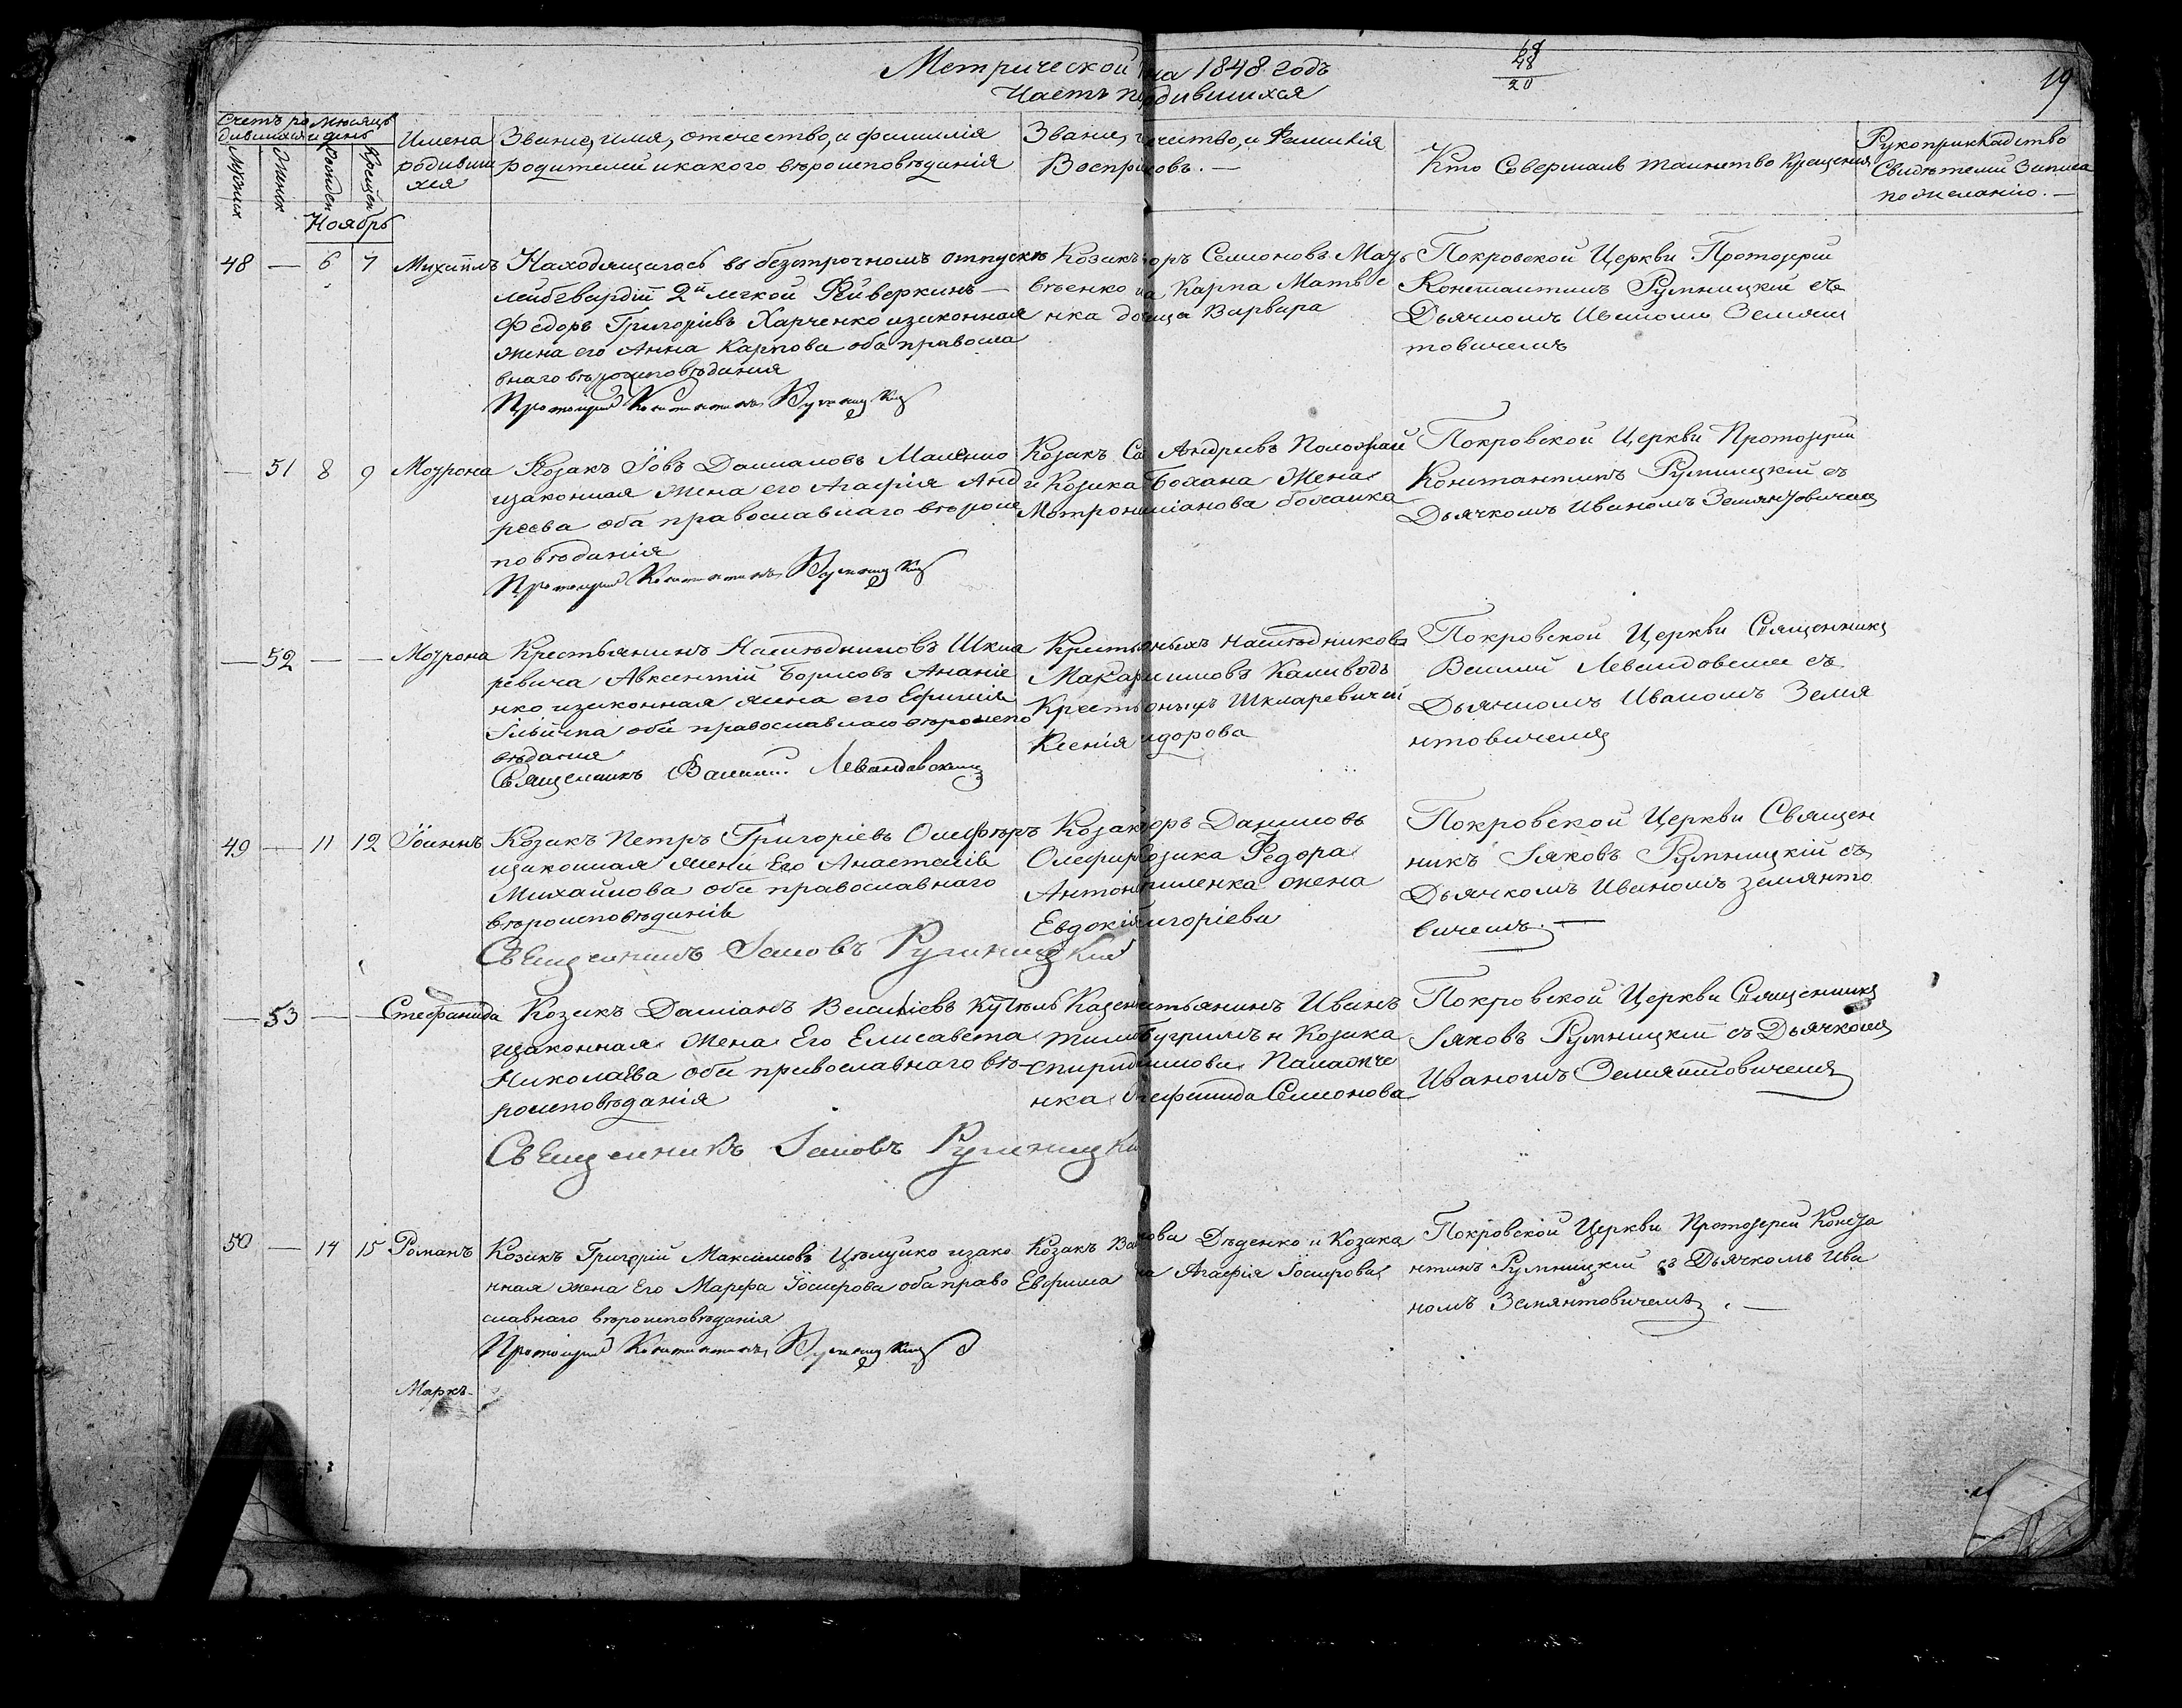 Метрической на 1848 годъ
Часть п родившихся
68
48
20
19
Счетъ ро
дившихся
Мѣсяцъ
и день
Мужеск
Женск
Рожден
Крещен
Имена
родивши
хся
Званіе, имя, отечество, и фамилія
родителей и какого вѣроисповѣданія
Званіе, чество, и Фамилія
Воспр ковъ. —
Кто Совершалъ таинство Крещенія
Рукоприкладство
Свидѣтелей Записа
по желанію. —
Ноябрь
48 — 6 7 Михаилъ
Находящагось въ безсрочномъ отпускѣ
лейбгвардіи 2й легкой Фейверкинъ —
Федоръ Григоріевъ Харченко изаконная
жена его Анна Карпова оба правосла
внаго вѣроисповѣданія
Протоіерей Константинъ Румницкій
Козакъ оръ Семіоновъ Мать
вѣенко и а Карпа Матвѣе
нка до ица Варвара
Покровской Церкви Протоіерей
Константинъ Румницкій съ
Дьячкомъ Иваномъ Земян
товичемъ
— 51 8 9 Мотрона
Козакъ Іовъ Даміановъ
изаконная жена его Агафія Анд
реева оба православнаго вѣроис
повѣданія
Протоіерей Константинъ Румницкій
Козакъ Са Андреевъ
и Козака Бохана Жена
Мотрон міанова боханка
Покровской Церкви Протоіерей
Константинъ Румницкій съ
Дьячкомъ Иваномъ Земянтовичемъ
— 52 — — Мотрона
Крестьянинъ Наслѣдниковъ Шкля
ревича Авксентій Борисовъ Ананіе
нко изаконная жена его Ефимія
оба православнаго вѣроиспо
вѣданія
Священникъ Василій Левандовскій
Крестья ныхъ наслѣдниковъ
Макар имовъ
Крестья ныхъ Шкларевичей
Ксенія идорова
Покровской Церкви Священникъ
Василий Левандовский съ
Дьячкомъ Иваномъ Земя
нтовичемъ
49 — 11 12 Іоаннъ
Козакъ Петръ Григоріевъ Олефѣръ
изаконная жена Его Анастасія
Михайлова оба православнаго
вѣроисповѣданія
Священникъ Іаковъ Румницкій
Козак оръ Даниловъ
Олефир озака Федора
Антон пиленка жена
Евдокія игоріева
Покровской Церкви Священ
никъ Іаковъ Румницкій съ
Дьячкомъ Иваномъ Земянто
вичемъ. —
— 53 — — Стефанида
Козакъ Даміанъ Василіевъ
изаконная Жена Его Елисавета
Николаева оба православнаго вѣ-
роисповѣданія
Священникъ Іаковъ Румницкій
Казен стьянинъ Иванъ
и Козака
Спирид имова Паламаче
нка Стефанида Семіонова
Покровской Церкви Священникъ
Іаковъ Румницкій съ Дьячкомъ
Иваномъ Земянтовичемъ
50 — 14 15 Романъ
Козакъ Григорій Максимовъ Цѣлуйко изако
нная жена Его Марфа Іосифова оба право
славнаго вѣроисповѣданія
Протоіерей Константинъ Румницкій
Козакъ Ва кова Дѣденко и Козака
Ефима на Агафія Іосифова
Покровской Церкви Протоіерей Конста
нтинъ Румницкій съ Дьячкомъ Ива
номъ Земянтовичемъ. —
Маркъ